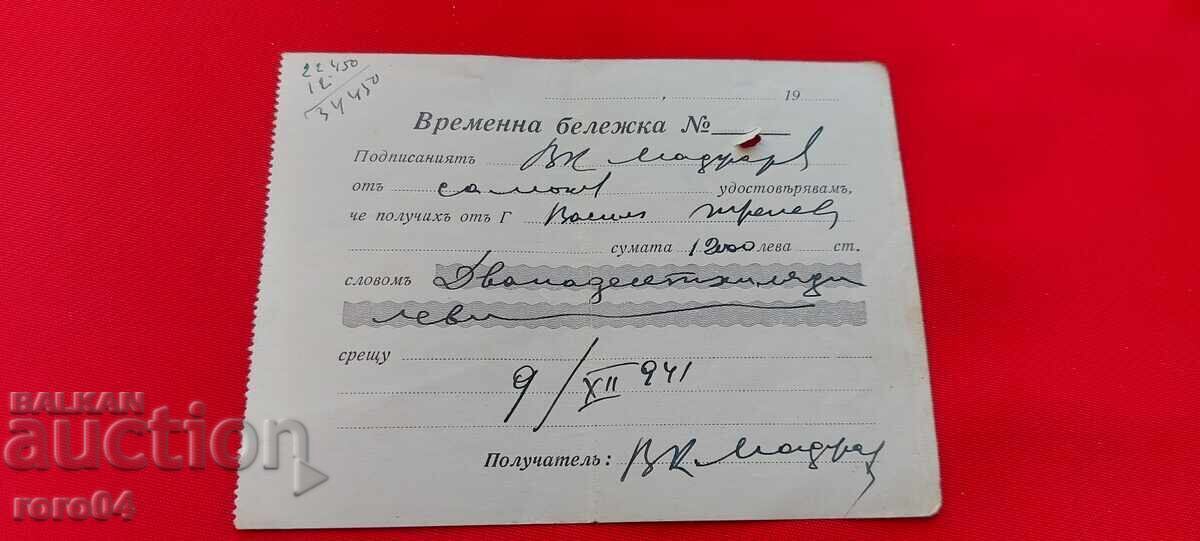 22 450
12
34 450
19
Временна бележка №
Подписаниятъ ВК
отъ удостовѣрявамъ,
че получихъ отъ Г Васил
сумата 12000 лева ст.
словомъ Дванадесетхиляди
леви
срещу
9/XII 941
Получатель: ВК
BALKAN
auction
roro04